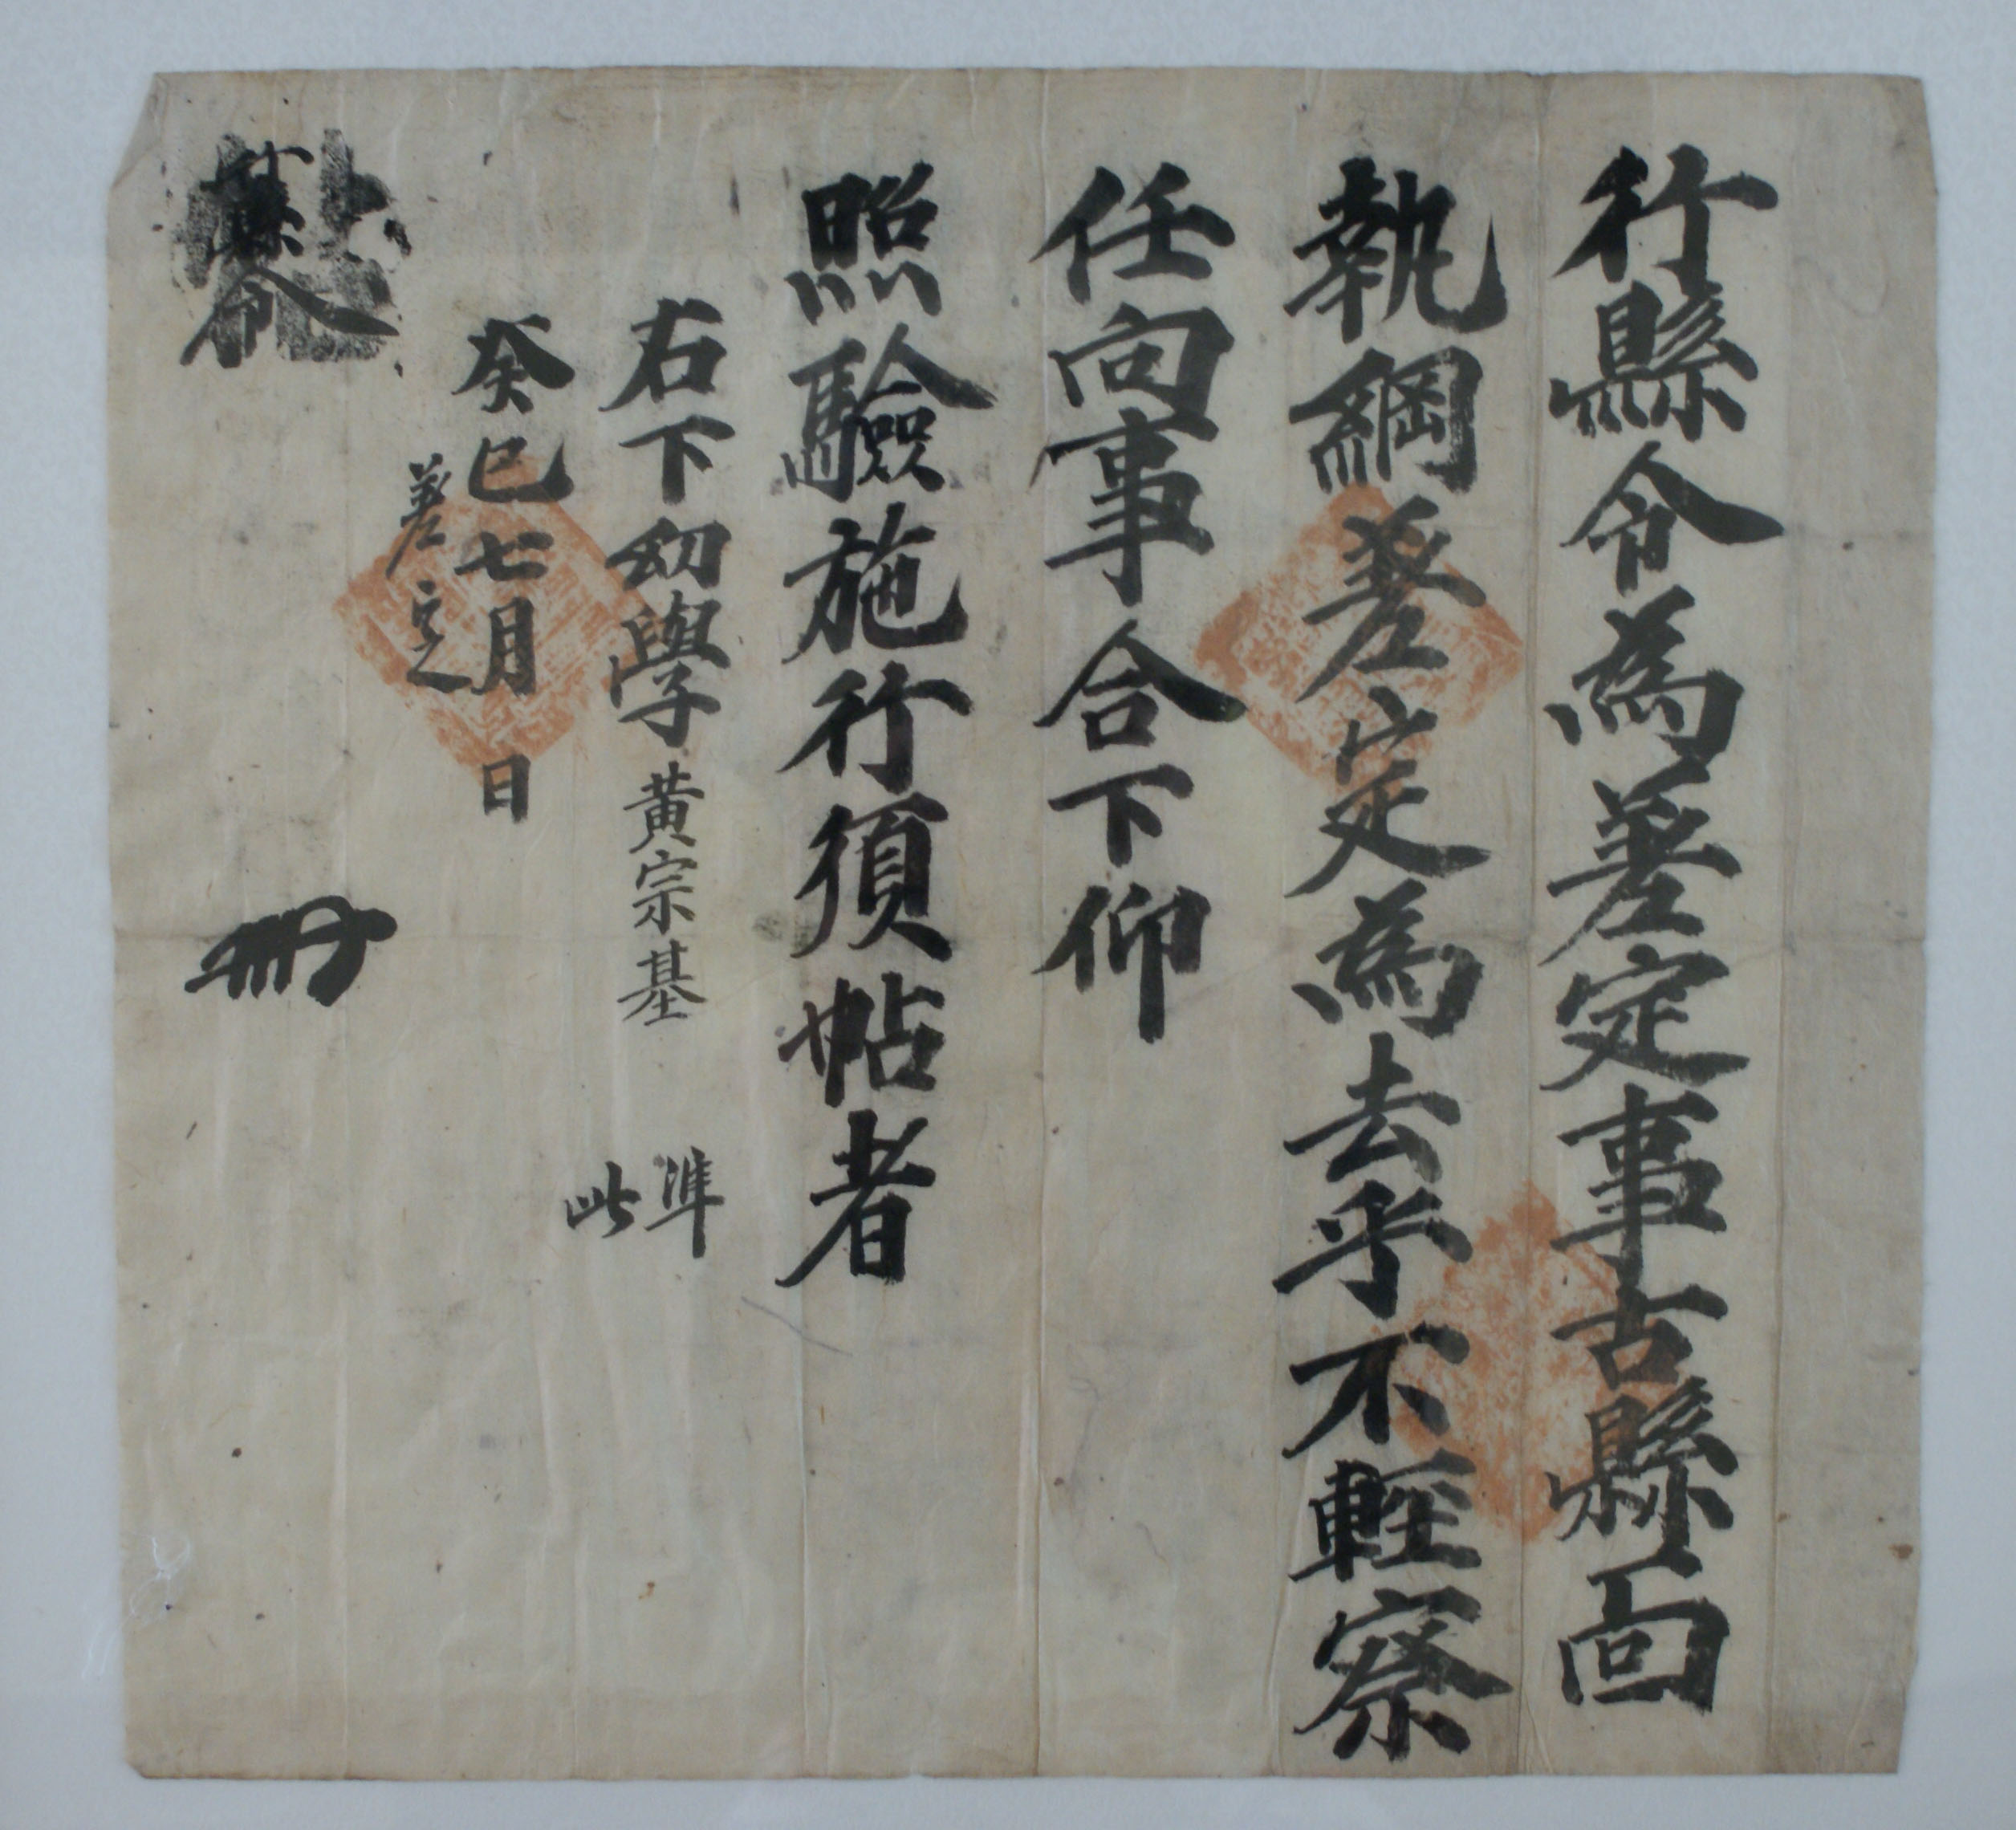 行縣令為差定事古縣面
執綱差定為去乎不輕察
任向事合下仰
照驗施行須帖者
右下幼學黃宗基 準此
癸巳七月 日
差定
縣令